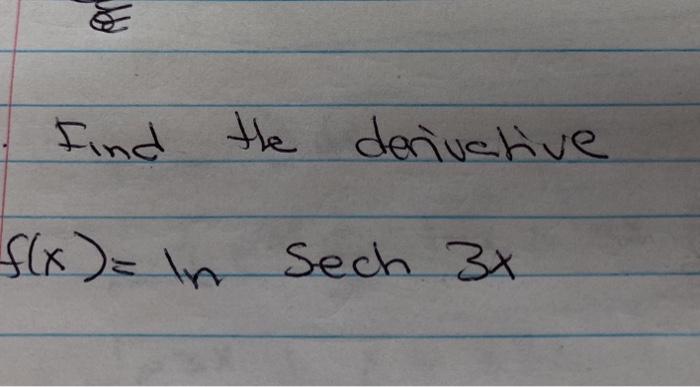 Find the derivative
f(x) = ln Sech 3x